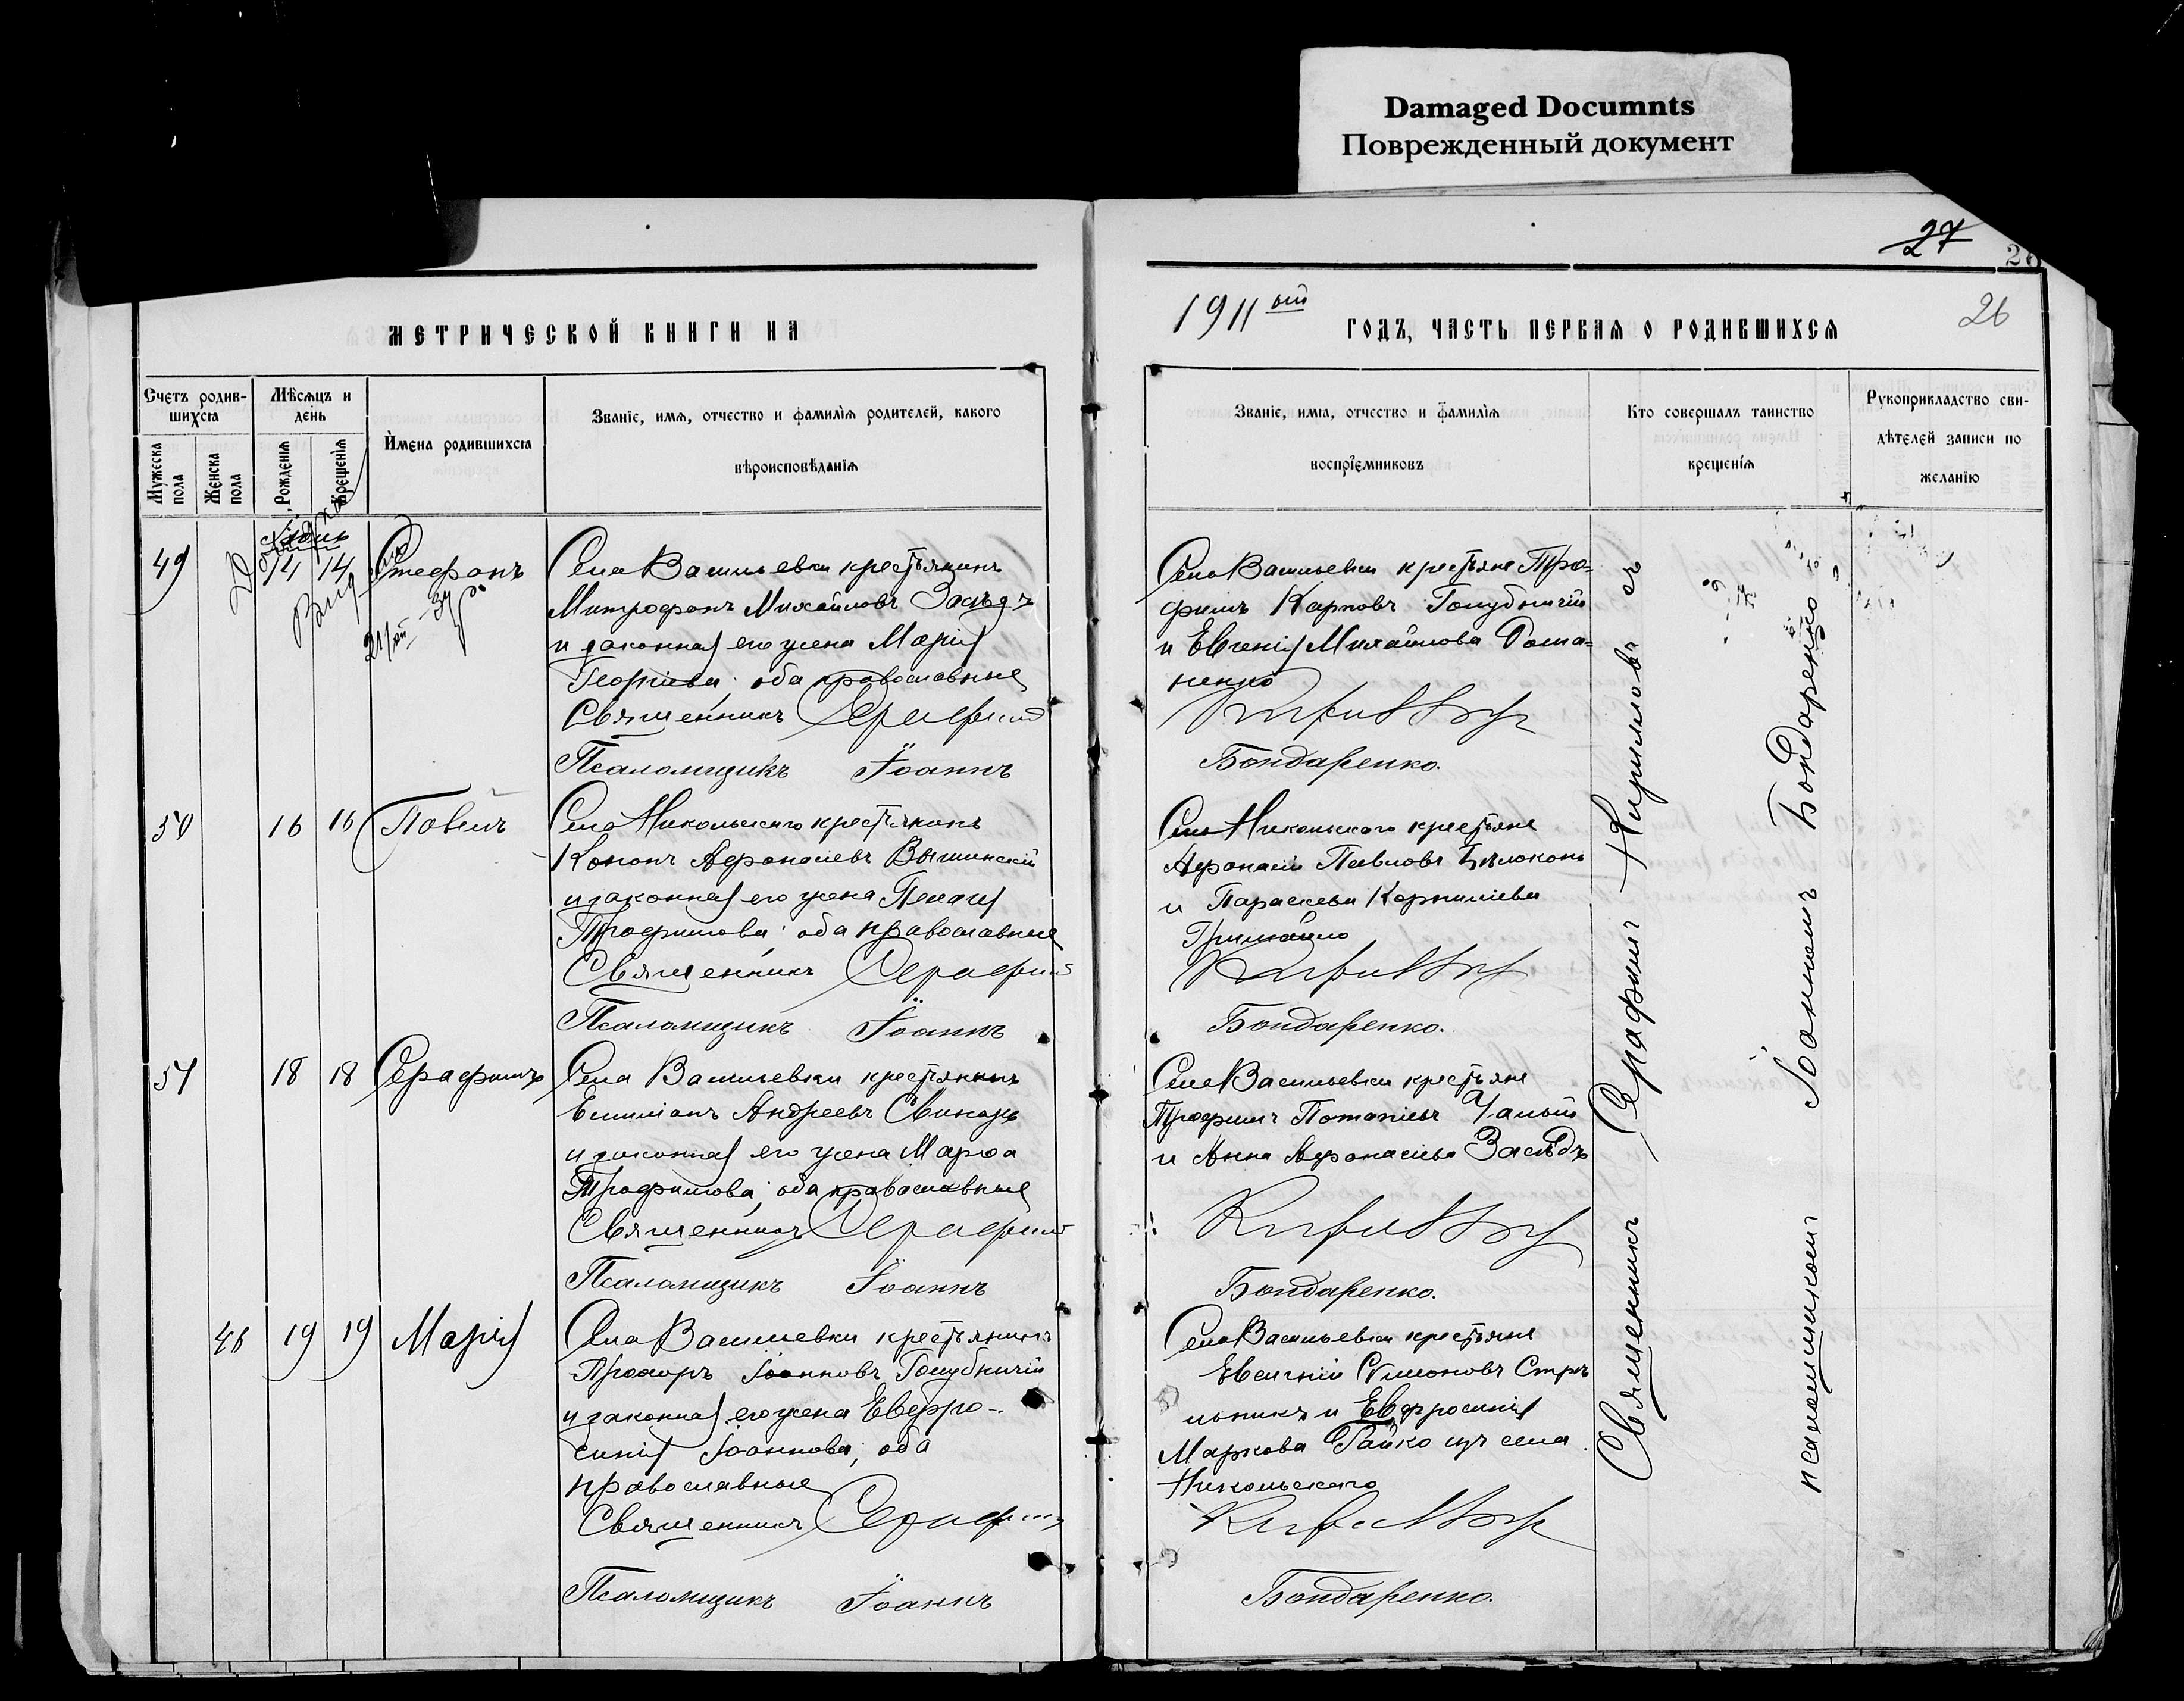 Damaged Documnts
Поврежденный документ
27
26
МЕТРИЧЕСКОЙ КНИГИ НА
1911 ый
ГОДЪ, ЧАСТЬ ПЕРВАЯ О РОДИВШИХСЯ
26
Счетъ родив-
шихся
Мѣсяцъ и
день
Мужеска
пола
Женска
пола
Рожденія
Крещенія
Имена родившихся
Званіе, имя, отчество и фамилія родителей, какого
вѣроисповѣданія
Званіе, имя, отчество и фамилія
воспріемниковъ
Кто совершалъ таинство
крещенія
Рукоприкладство сви-
дѣтелей записи по
желанію
49
14 14
Стефанъ
Села Васильевки крестьянинъ
Митрофанъ Михайловъ Заслѣдъ
и законная его жена Марія
Георгіева; оба православные
Священникъ Серафимъ
Псаломщикъ Іоаннъ
Села Васильевки крестьяне Тро-
фимъ Карповъ Голубничій
и Евгенія Михайлова Рома-
ненко
Бондаренко.
50
16 16
Павелъ
Села Никольскаго крестьянинъ
Кононъ Аѳанасіевъ Вышинскій
и законная его жена Пелагія
Трофимова; оба православные
Священникъ Серафимъ
Псаломщикъ Іоаннъ
Села Никольскаго крестьяне
Афанасій Павловъ Бѣлоконь
и Параскева Корниліева
Бондаренко.
51
18 18
Серафимъ
Села Васильевки крестьянинъ
Емиліанъ Андреевъ Свинарь
и законная его жена Марѳа
Трофимова; оба православные
Священникъ Серафимъ
Псаломщикъ Іоаннъ
Села Васильевки крестьяне
Трофимъ Потапіевъ Чалый
и Анна Афанасіева Заслѣдъ
Бондаренко.
46
19 19
Марія
Села Васильевки крестьянинъ
Прохоръ Іоанновъ Голубничій
и законная его жена Евфро-
синія Іоаннова; оба
православные
Священникъ Серафимъ
Псаломщикъ Іоаннъ
Села Васильевки крестьяне
Евгеній Симоновъ Стрѣ
льникъ и Евфросинія
Маркова Гайко изъ села
Никольскаго
Бондаренко.
Священникъ Серафимъ Кирилловъ съ
псаломщикомъ Іоанномъ Бондаренко